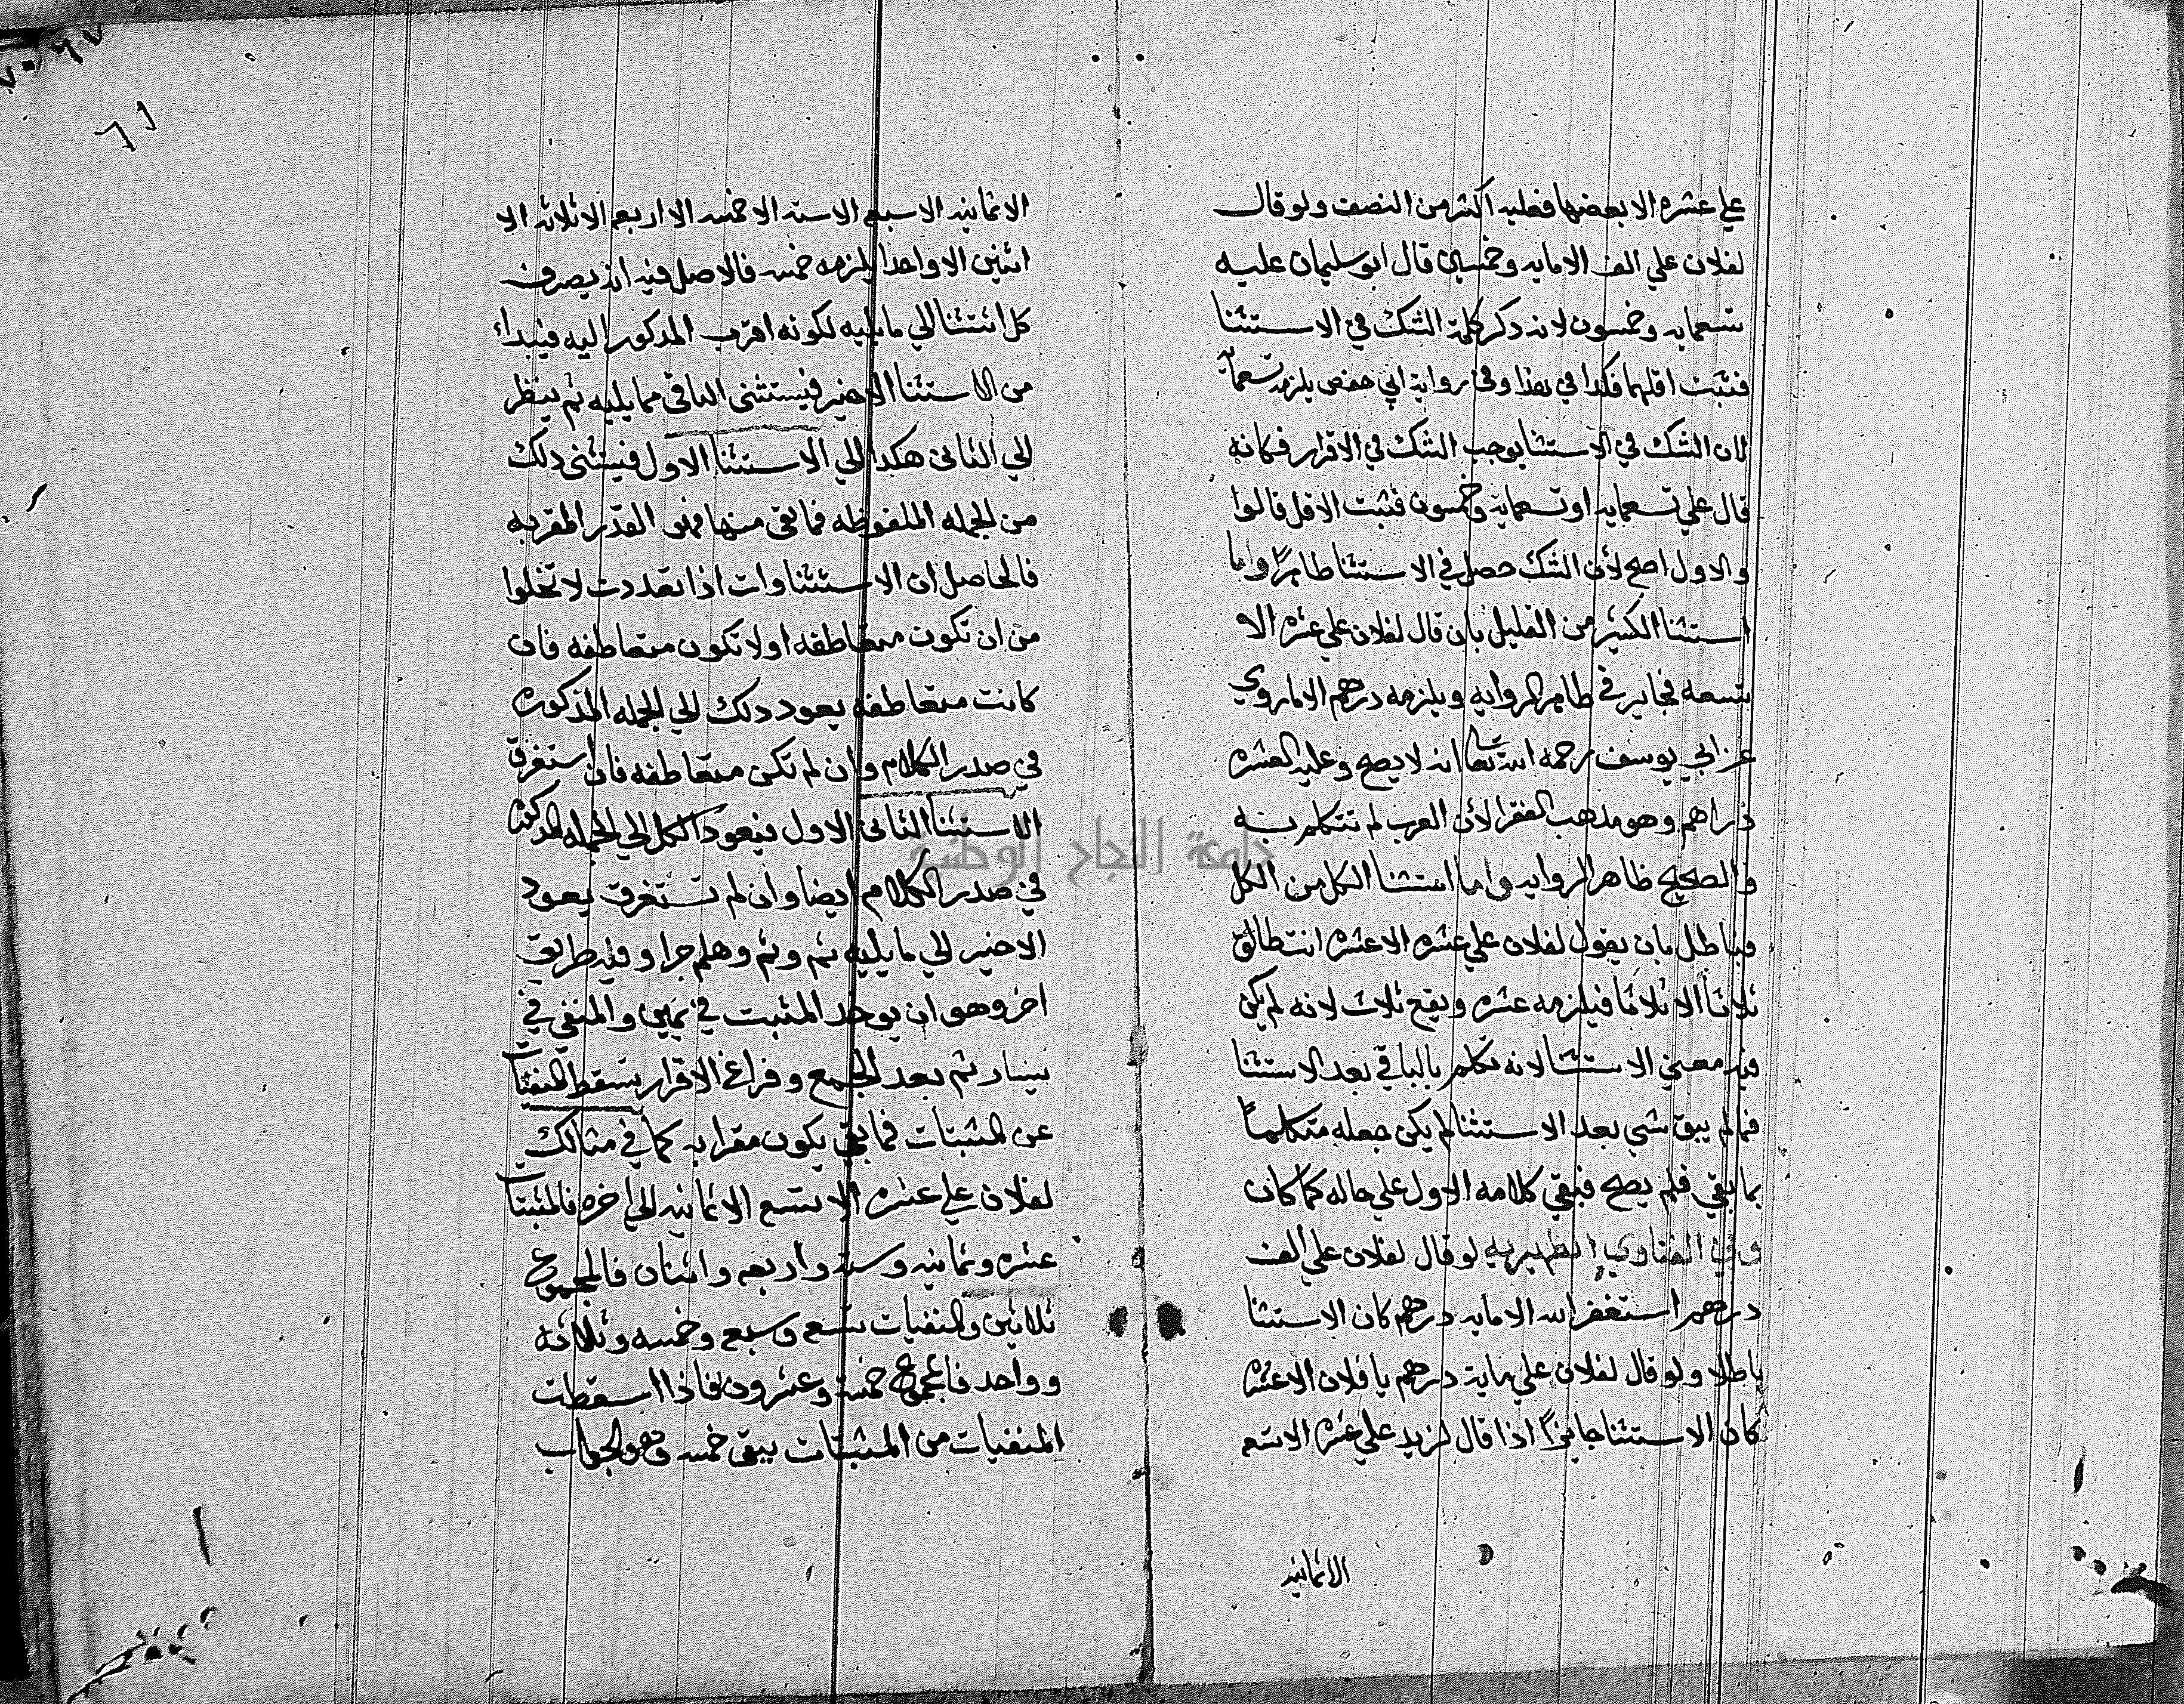 علي عشره الا بعضها فعليه اكثر من النصف ولو قال
لفلان علي الف الا مايه وخمسين قال ابو سليمان عليه
تسعمايه وخمسون لانه دكر كلمة الشك في الاستثنا
فثبت اقلهما فكدا في هدا وفي رواية ابي حفص يلزمه تسعمايه
لان الشك في الاستثنا يوجب الشك في الاقرار فكانه
قال علي تسعمايه او تسعمايه وخمسون فثبت الاقل قالوا
والاول اصح لأن الشك حصل في الاستثنا ظاهرًا واما
استثنا الكثير من القليل بان قال لفلان علي عشره الا
تسعه فجايز في ظاهر الروايه ويلزمه درهم الا ما روي
عن ابي يوسف رحمه الله تعا انه لا يصح وعليه العشره
دراهم وهو مذهب الفقرا لأن العرب لم تتكلم به
والصحيح ظاهر الروايه واما استثنا الكل من الكل
فباطل بان يقول لفلان علي عشره الا عشره انت طالق
ثلاثاً الا ثلاثا فيلزمه عشره ويقع ثلاث لانه لم يكن
فيه معني الاستثنا لانه تكلم بالباقي بعد الاستثنا
فما لم يبق شي بعد الاستثنا لم يكن جعله متكلماً
بما بقي فلم يصح فبقي كلامه الاول علي حاله كما كان
وفي الفتاوي الظهيريه لو قال لفلان علي الف
درهم استغفر الله الا مايه درهم كان الاستثنا
باطلا ولو قال لفلان علي ماية درهم يا فلان الا عشره
كان الاستثنا جايزاً اذا قال لزيد علي عشره الا تسع
الا ثمانيه
٦١
الا ثمانيه الا سبع الا سته الا خمسه الا اربعه الا ثلاثه الا
اثنين الا واحدا يلزمه خمسه فالاصل فيه انه يصرف
كل استثنا الي ما يليه لكونه اقرب المدكور اليه فيبداء
من الاستثنا الاخير فيستثنى الباقي مما يليه ثم ينظر
الي الثاني هكدا الي الاستثنا الاول فيستثنى دلك
من الجمله الملفوظه فما بقى منها فهو القدر المقر به
فالحاصل ان الاستثناوات اذا تعددت لا تخلوا
من ان تكون متعاطفه او لا تكون متعاطفه فان
كانت متعاطفه يعود دلك الي الجمله المذكوره
في صدر الكلام وان لم تكن متعاطفه فان استغرق
الاستثنا الثاني الاول فيعود الكل الي الجمله المدكوره
في صدر الكلام ايضا وان لم تستغرق يعود
الاخير الي ما يليه ثم وثم وهلم جرا وفيه طريق
اخر وهو ان يوخد المثبت في يمين والمنفي في
يسار ثم بعد الجمع وفراغ الاقرار يسقط المنفيات
عن المثبتات فما بقي يكون مقرا به كما في مثالك
لفلان علي عشره الا تسع الا ثمانيه الي اخره فالمثبتات
عشره وثمانيه وسته واربعه واثنان فالمجموع
ثلاثين والمنفيات تسع وسبع وخمسه وثلاثه
وواحد فالمجموع خمسة وعشرون فاذا اسقطت
المنفيات من المثبتات يبقى خمسه وهو الجواب
جامعة النجاح الوطنية